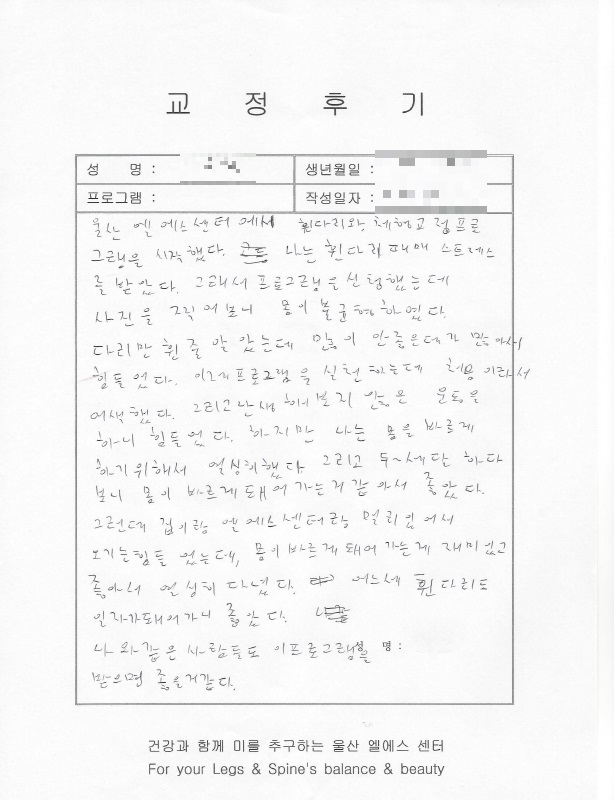 교 정 후 기
성 명 : 생년월일 :
프로그램 : 작성일자 :
울산 엘에스센터에서 휜다리와 체형교정프로
그램을 시작했다. 나는 휜다리 때매 스트레스
를 받았다. 그래서 프로그램을 신청했는데
사진을 찍어보니 몸이 불균형하였다.
다리만 휜줄 알았는데 몸이 안좋은데가 많아서
힘들었다. 이프로그램을 실천하는데 처음이라서
어색했다. 그리고 난생 해보지 않은 운동을
하니 힘들었다. 하지만 나는 몸을 바르게
하기위해서 열심히했다 그리고 두~세달 하다
보니 몸이 바르게돼어가는거같아서 좋았다.
그런데 집이랑 엘에스센터랑 멀리있어서
오기는힘들었는데, 몸이바르게돼어가는게 재미있고
좋아서 열심히 다녔다. 어느세 휜다리도
일자가돼어가니 좋았다.
나와같은 사람들도 이프로그램을 성 명 :
받으면 좋을거같다.
건강과 함께 미를 추구하는 울산 엘에스 센터
For your Legs & Spine's balance & beauty